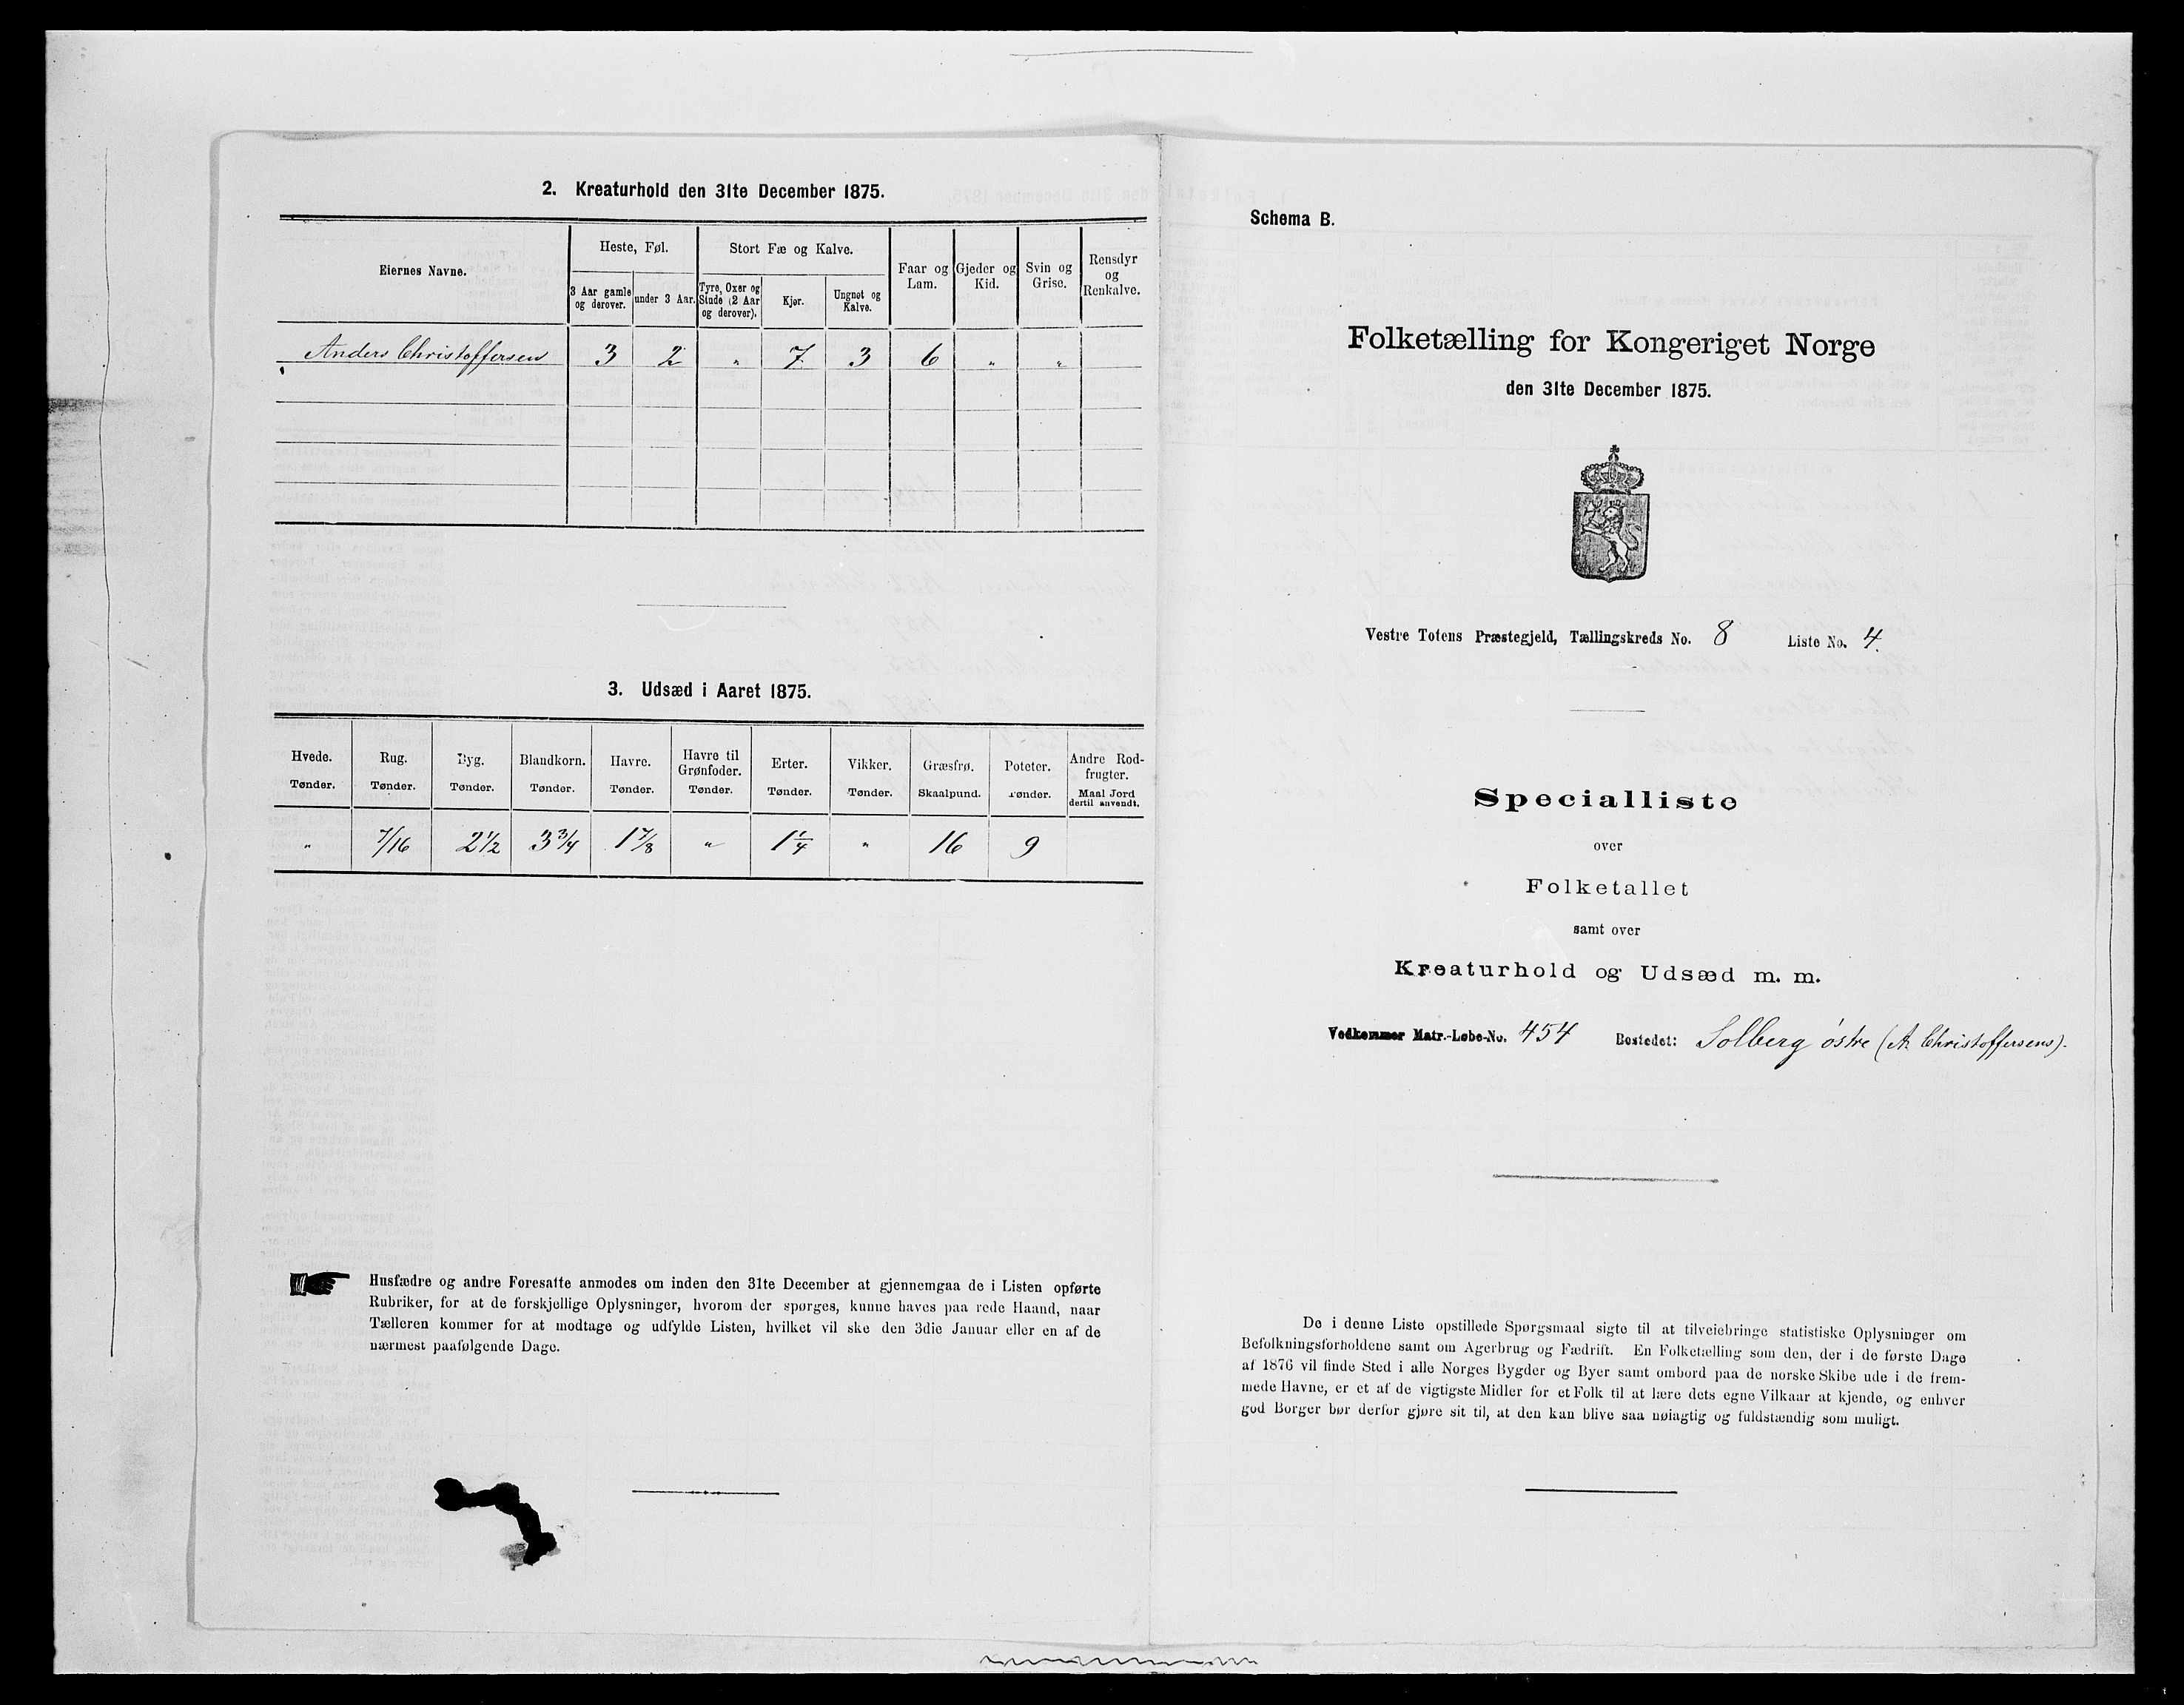 2. Kreaturhold den 31te December 1875.
Eiernes Navne.
Heste, Føl.
3 Aar gamle og derover.
under 3 Aar.
Stort Fæ og Kalve.
Tyre, Oxer og Stude (2 Aar og derover).
Kjør.
Ungnøt og Kalve.
Faar og Lam.
Gjeder og Kid.
Svin og Grise.
Rensdyr og Renkalve.
Anders Christoffersen 3 2 " 7 3 6 " "
3. Udsæd i Aaret 1875.
Hvede. Rug. Byg. Blandkorn. Havre. Havre til Grønfoder. Erter. Vikker. Græsfrø. Poteter. Andre Rodfrugter.
Tønder. Tønder. Tønder. Tønder. Tønder. Tønder. Tønder. Tønder. Skaalpund. Tønder. Maal Jord dertil anvendt.
" 7/16 2 1/2 3 3/4 1 7/8 " 1 1/4 " 16 9
Husfædre og andre Foresatte anmodes om inden den 31te December at gjennemgaa de i Listen opførte
Rubriker, for at de forskjellige Oplysninger, hvorom der spørges, kunne haves paa rede Haand, naar
Tælleren kommer for at modtage og udfylde Listen, hvilket vil ske den 3die Januar eller en af de
nærmest paafølgende Dage.
Schema B.
Folketælling for Kongeriget Norge
den 31te December 1875.
Vestre Totens Præstegjeld, Tællingskreds No. 8 Liste No. 4.
Specialliste
over
Folketallet
samt over
Kreaturhold og Udsæd m. m.
Vedkommer Matr.-Løbe-No. 454 Bostedet: Solberg østre (A. Christoffersens).
De i denne Liste opstillede Spørgsmaal sigte til at tilveiebringe statistiske Oplysninger om
Befolkningsforholdene samt om Agerbrug og Fædrift. En Folketælling som den, der i de første Dage
af 1876 vil finde Sted i alle Norges Bygder og Byer samt ombord paa de norske Skibe ude i de frem-
mede Havne, er et af de vigtigste Midler for et Folk til at lære dets egne Vilkaar at kjende, og enhver
god Borger bør derfor gjøre sit til, at den kan blive saa nøiagtig og fuldstændig som muligt.